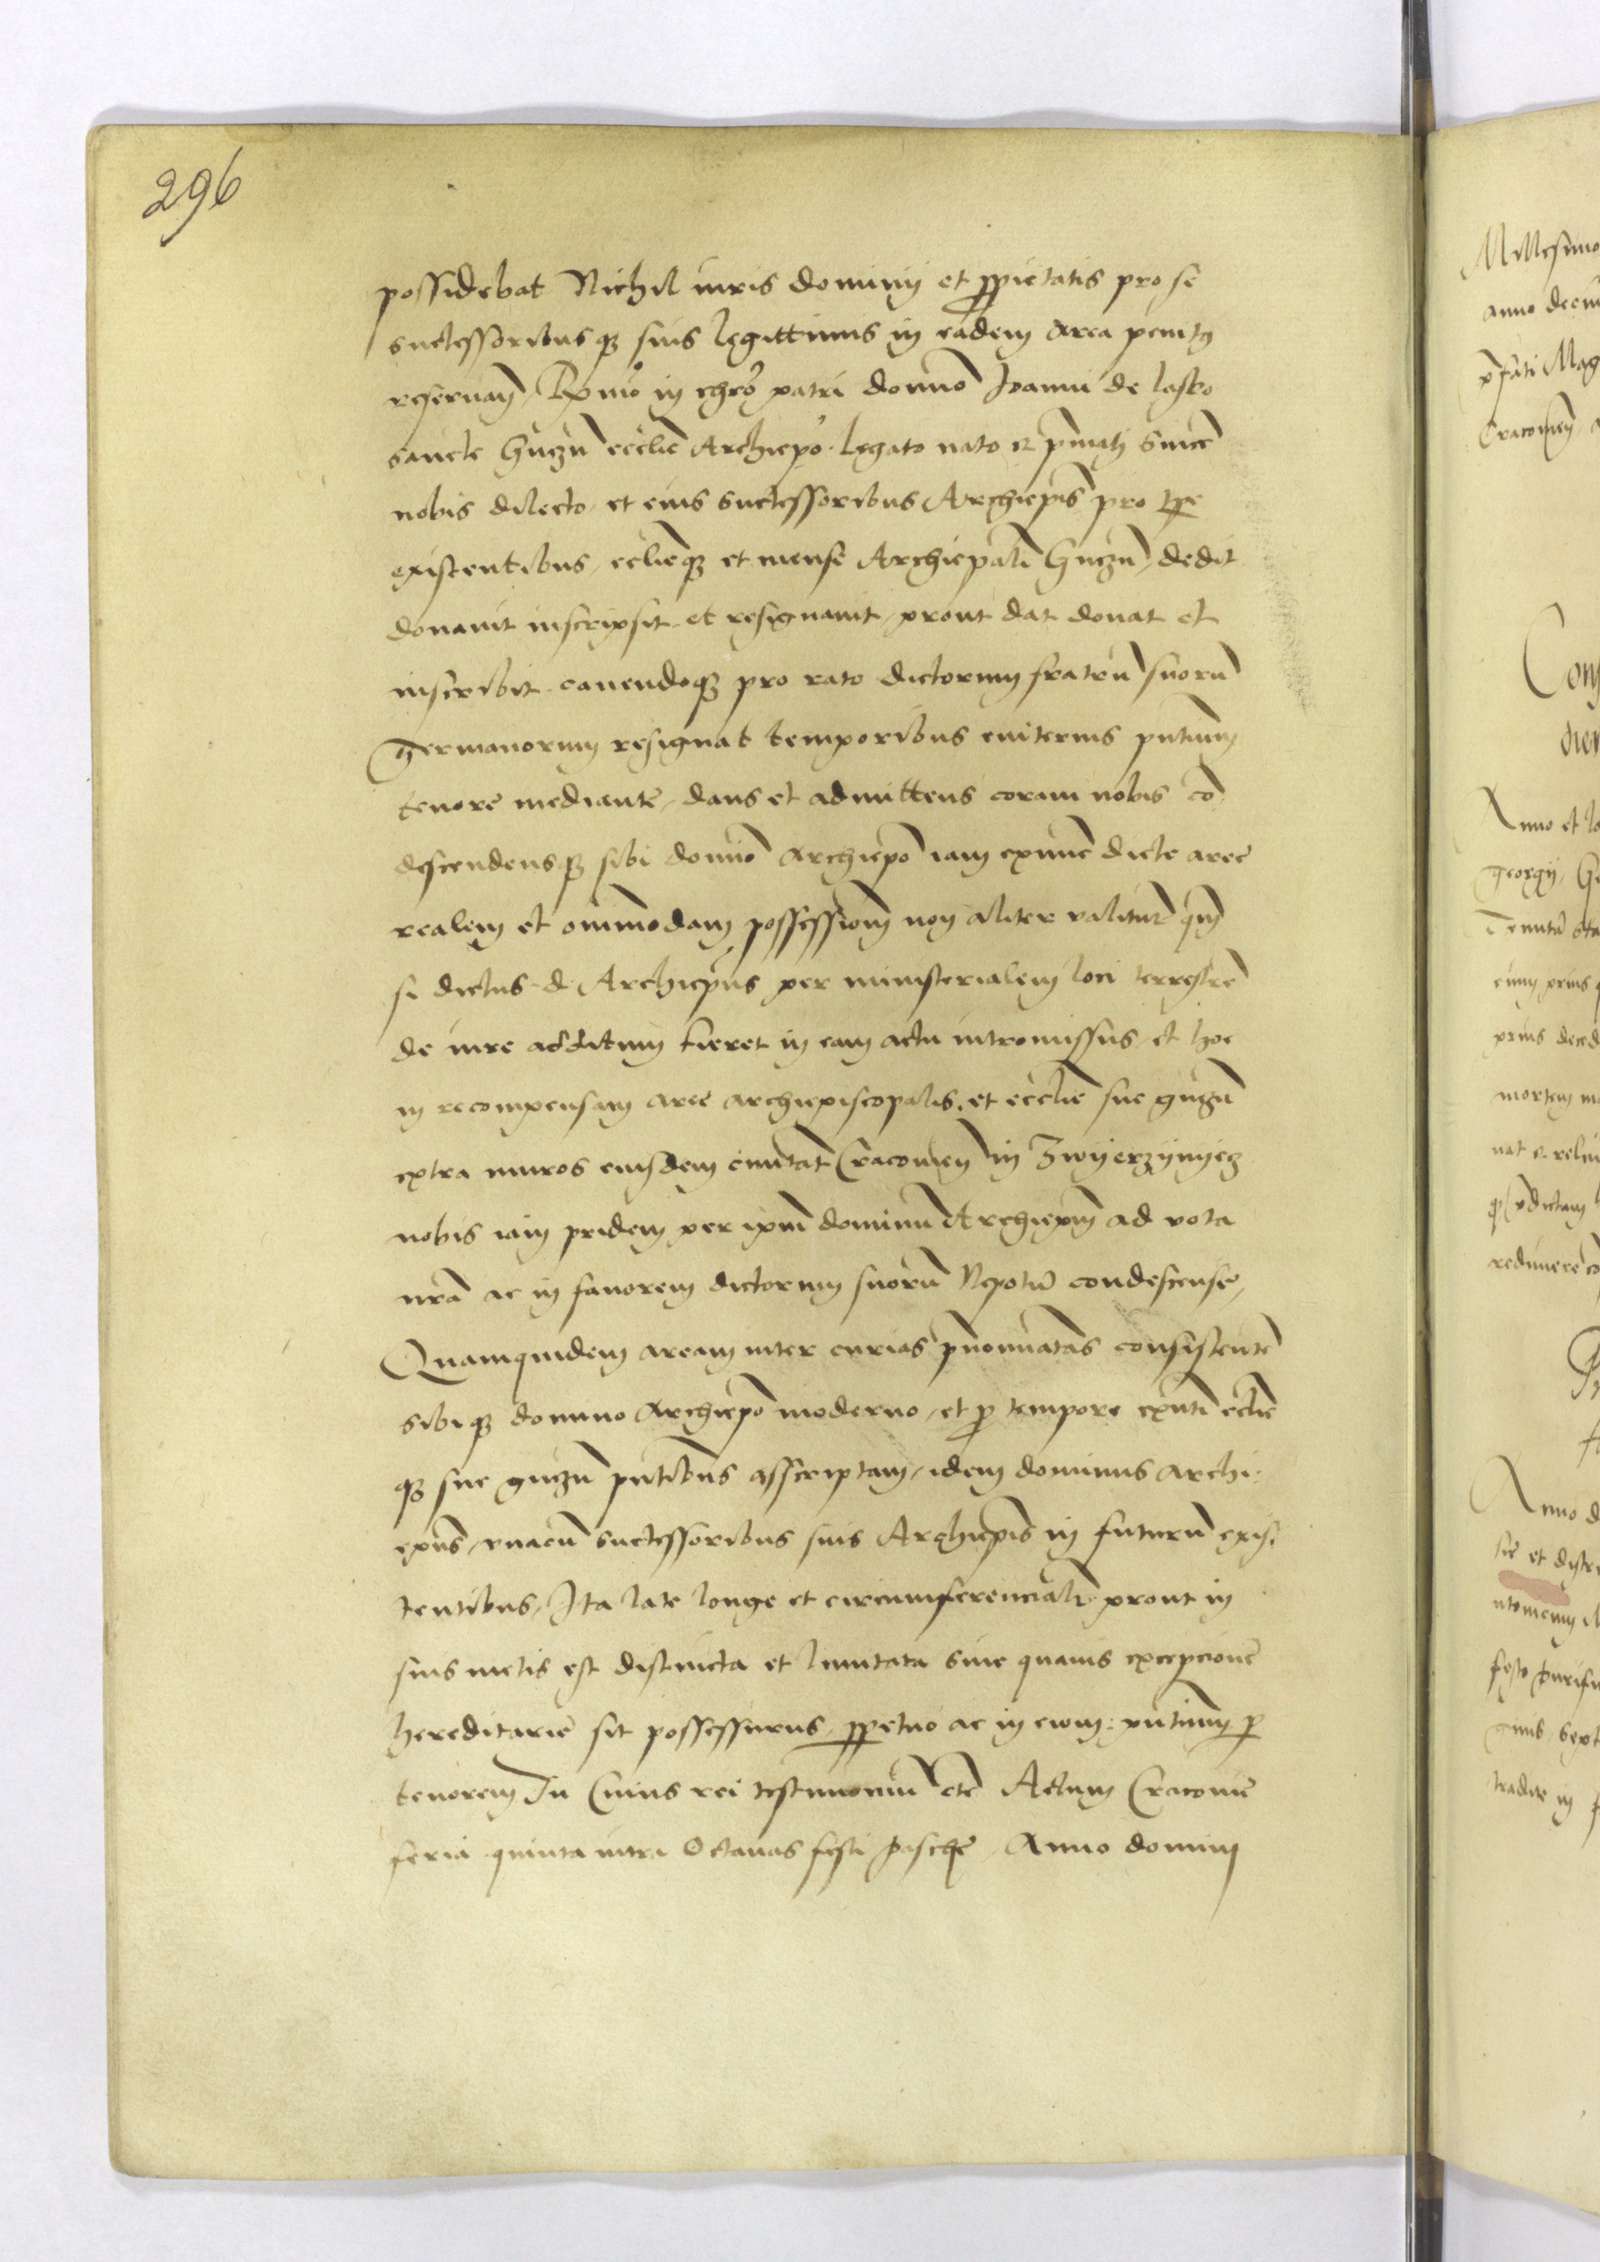 296
possidebat Nichil iuris dominij et ꝓprietatis pro se
successoribusqꝫ suis legittimis in eadem area penitꝯ
reseruan̄. Rx̄mo in chrō patri domīo Joanni de lasko
sancte Gnezn̄ ecclīe Archiepō. legato nato et pmati sincē
nobis dilecto. et eius successoribus Archiepīs pro tꝑe
existentibus. ecclīeqꝫ et mense Archiepali Gnezn̄. dedit
donauit inscripsit et resignauit. prout dat donat et
inscribit. cauendoqꝫ pro rato dictorum fratrū suorū
germanorum resignat temporibus euiternis pn̄tium
tenore mediante. dans et admittens coram nobis co
descendensqꝫ sibi domīo Archiepō iam exnunc dicte aree
realem et omnimodam possessionem non aliter valitur̄ qm̄
si dictus d. Archiepūs per ministerialem loci terrestrē
de iure additum fieret in eam actu intromissus et hoc
in recompensam aree archiepiscopalis. et ecclīe sue gnezn̄
extra muros eiusdem ciuitat̄ Cracouien̄ in Zwijerzijnijecz
nobis iam pridem per ipm̄ dominū Archiepm̄ ad vota
nr̄a ac in fauorem dictorum suorū Nepotū condescense.
Quamquidem aream inter curias pnominatas consistentē
sibiqꝫ domino Archiepō moderno. et ꝓ tempore exn̄ti ecclīe
qꝫ sue gnezn̄ pn̄tibus asscriptam. idem dominus archi
epūs. vnacū successoribus suis Archiepīs in futurū exis
tentibus. Ita late longe et circumferencialr̄ prout in
suis metis est distincta et limitata sine quauis excepcione
hereditarie sit possessurus. ꝑpetuo ac in euum: pn̄tium ꝑ
tenorem In Cuius rei testimoniū etc̄ Actum Cracouie
feria quinta intra Octauas festi pasche. Anno domini
Millesimo
anno decim
p̄fati Mag
Cracouien̄
Anno et lo
georgij
mortem
Anno d
et distr